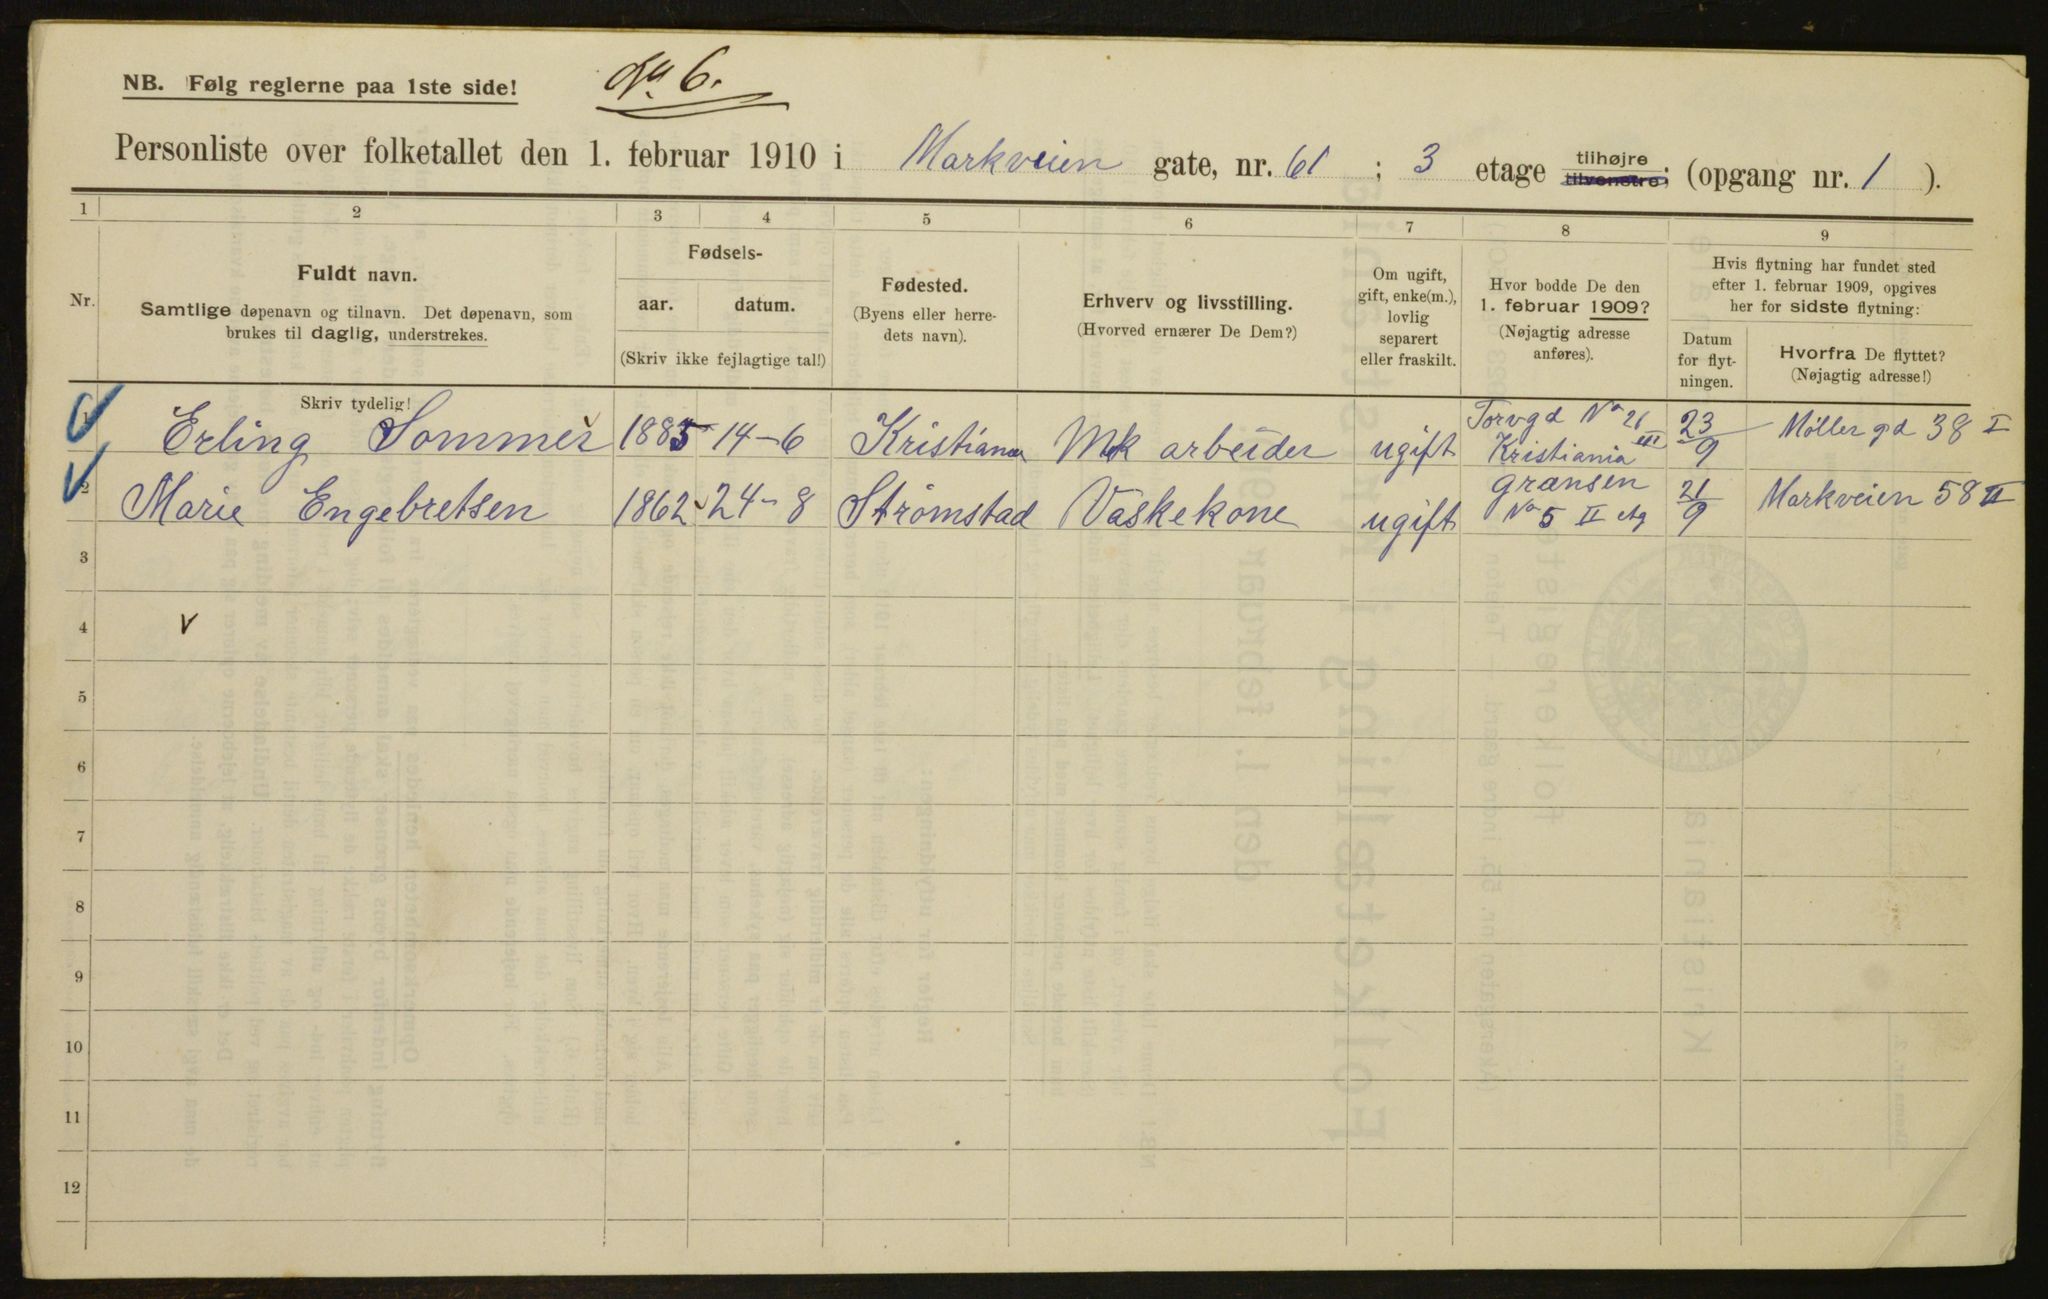 NB. Følg reglerne paa 1ste side!
No. 6.
Personliste over folketallet den 1. februar 1910 i Markveien gate, nr. 61 ; 3 etage tilhøjre tilvenstre; (opgang nr. 1 ).
1 2 3 4 5 6 7 8 9
Nr.
Fuldt navn.
Samtlige døpenavn og tilnavn. Det døpenavn, som
brukes til daglig, understrekes.
Skriv tydelig!
Fødsels-
aar. datum.
(Skriv ikke fejlagtige tal!)
Fødested.
(Byens eller herre-
dets navn).
Erhverv og livsstilling.
(Hvorved ernærer De Dem?)
Om ugift,
gift, enke(m.),
lovlig
separert
eller fraskilt.
Hvor bodde De den
1. februar 1909?
(Nøjagtig adresse
anføres).
Hvis flytning har fundet sted
efter 1. februar 1909, opgives
her for sidste flytning:
Datum
for flyt-
ningen.
Hvorfra De flyttet?
(Nøjagtig adresse!)
1 Erling Sommer 1885 14-6 Kristiania Mek arbeider ugift Torvgd No 21 III Kristiania 23/9 Møllergd 38 I
2 Marie Engebretsen 1862 24-8 Strømstad Vaskekone ugift Grænsen No 5 II etg 21/9 Markveien 58 II
3
4
5
6
7
8
9
10
11
12